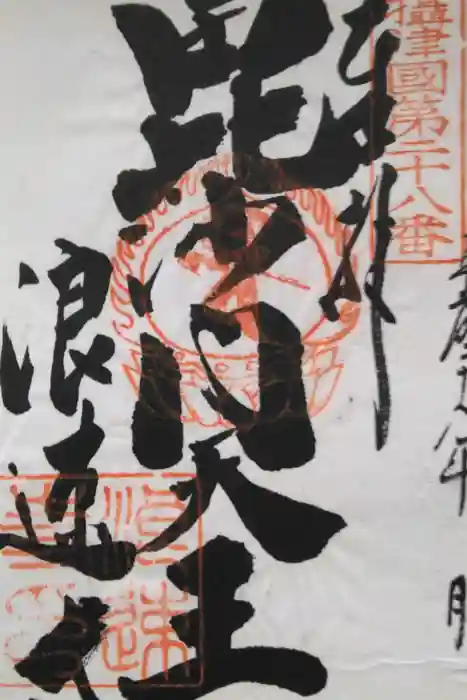 攝津國第二十八番
奉拝
毘沙門天王
浪速
年 月